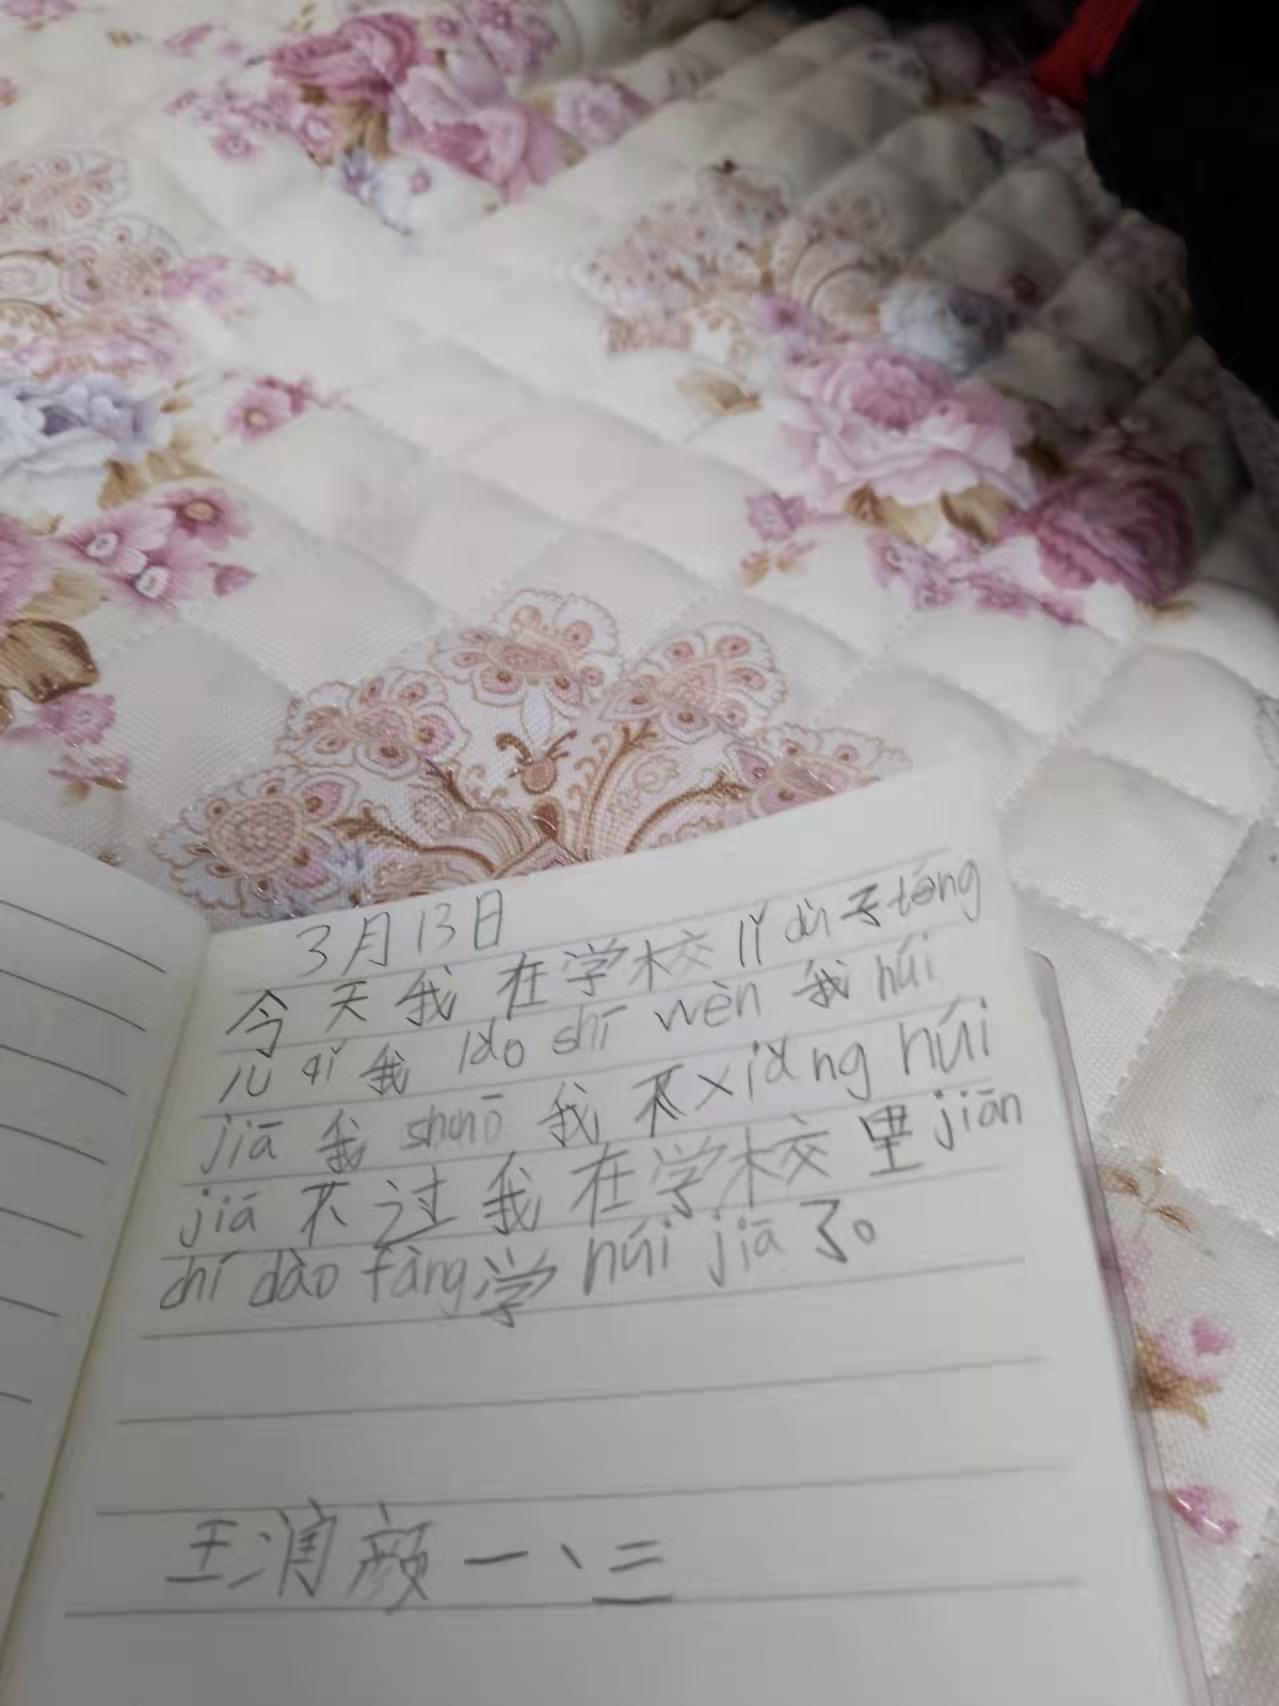 3月13日
今天我在学校lǐ dù子téng
我lǎo shī wèn我húi
jiā我shuō我不xiǎng húi
jiā不过我在学校里jiān
chí dào fàng学húi jiā了。
王润颜一、三